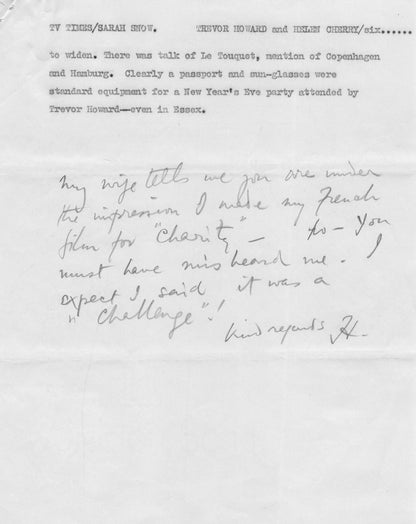 TV TIMES/SARAH SNOW. TREVOR HOWARD and HELEN CHERRY/six......
to widen. There was talk of Le Touquet, mention of Copenhagen
and Hamburg. Clearly a passport and sun-glasses were
standard equipment for a New Year's Eve party attended by
Trevor Howard—even in Essex.
my wife tells me you are under
the impression I made my French
film for "Charity" — no — You
must have mis heard me. I
expect I said it was a
"Challenge"!
Kind regards TH.